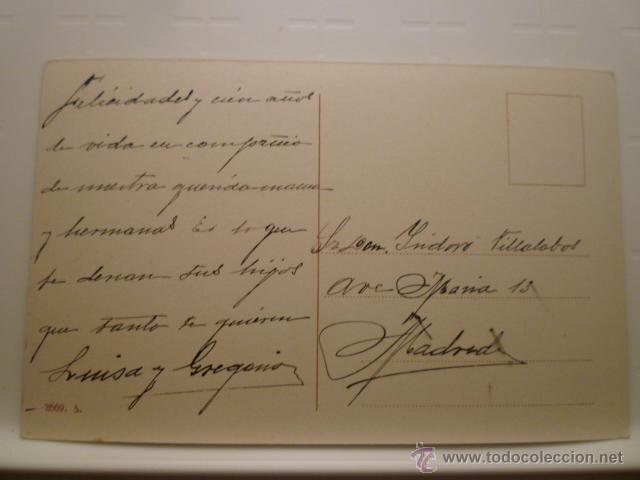 Felicidades y cien años
de vida en compañia
de nuestra querida mama
y hermanas Es lo que
te desean tus hijos
que tanto te quieren
Luisa y Gregorio
Sr Don. Isidoro Villalobos
Ave Maria 13
Madrid
5.
www.todocoleccion.net